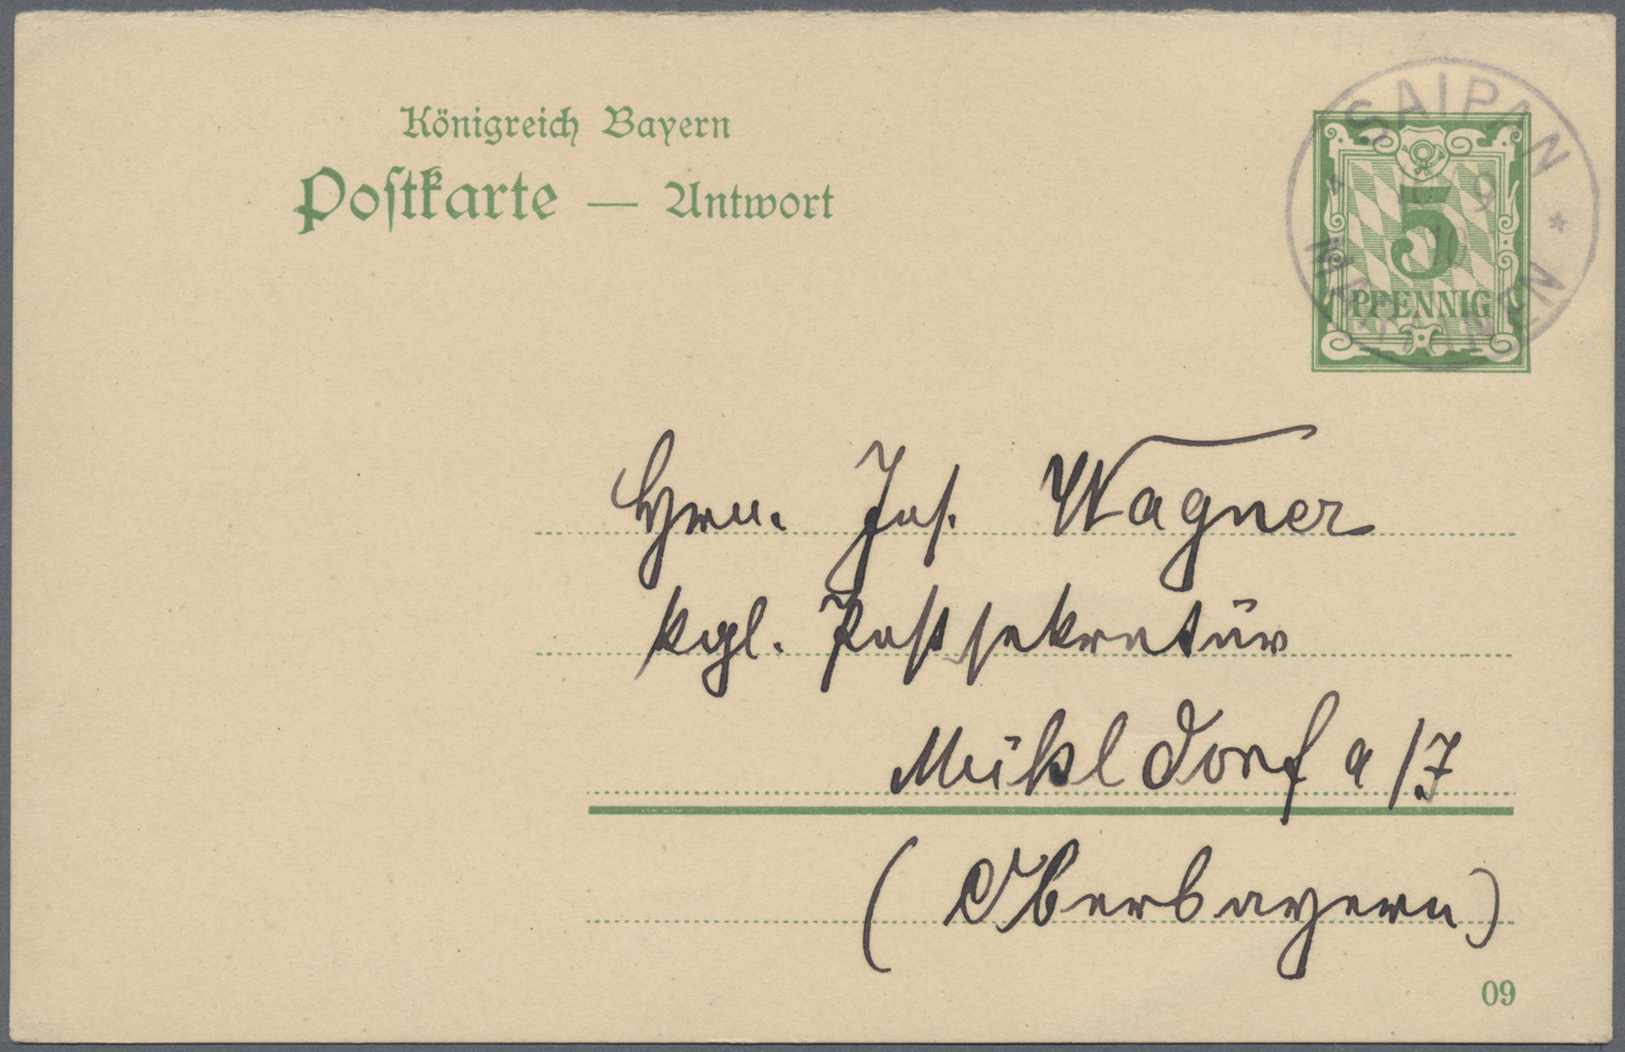 Königreich Bayern
Postkarte — Antwort
SAIPAN
9
10
MARIANEN
5
PFENNIG
Herrn. Jos. Wagner
kgl. Postsekretär
Mühldorf a/I
(Oberbayern)
09